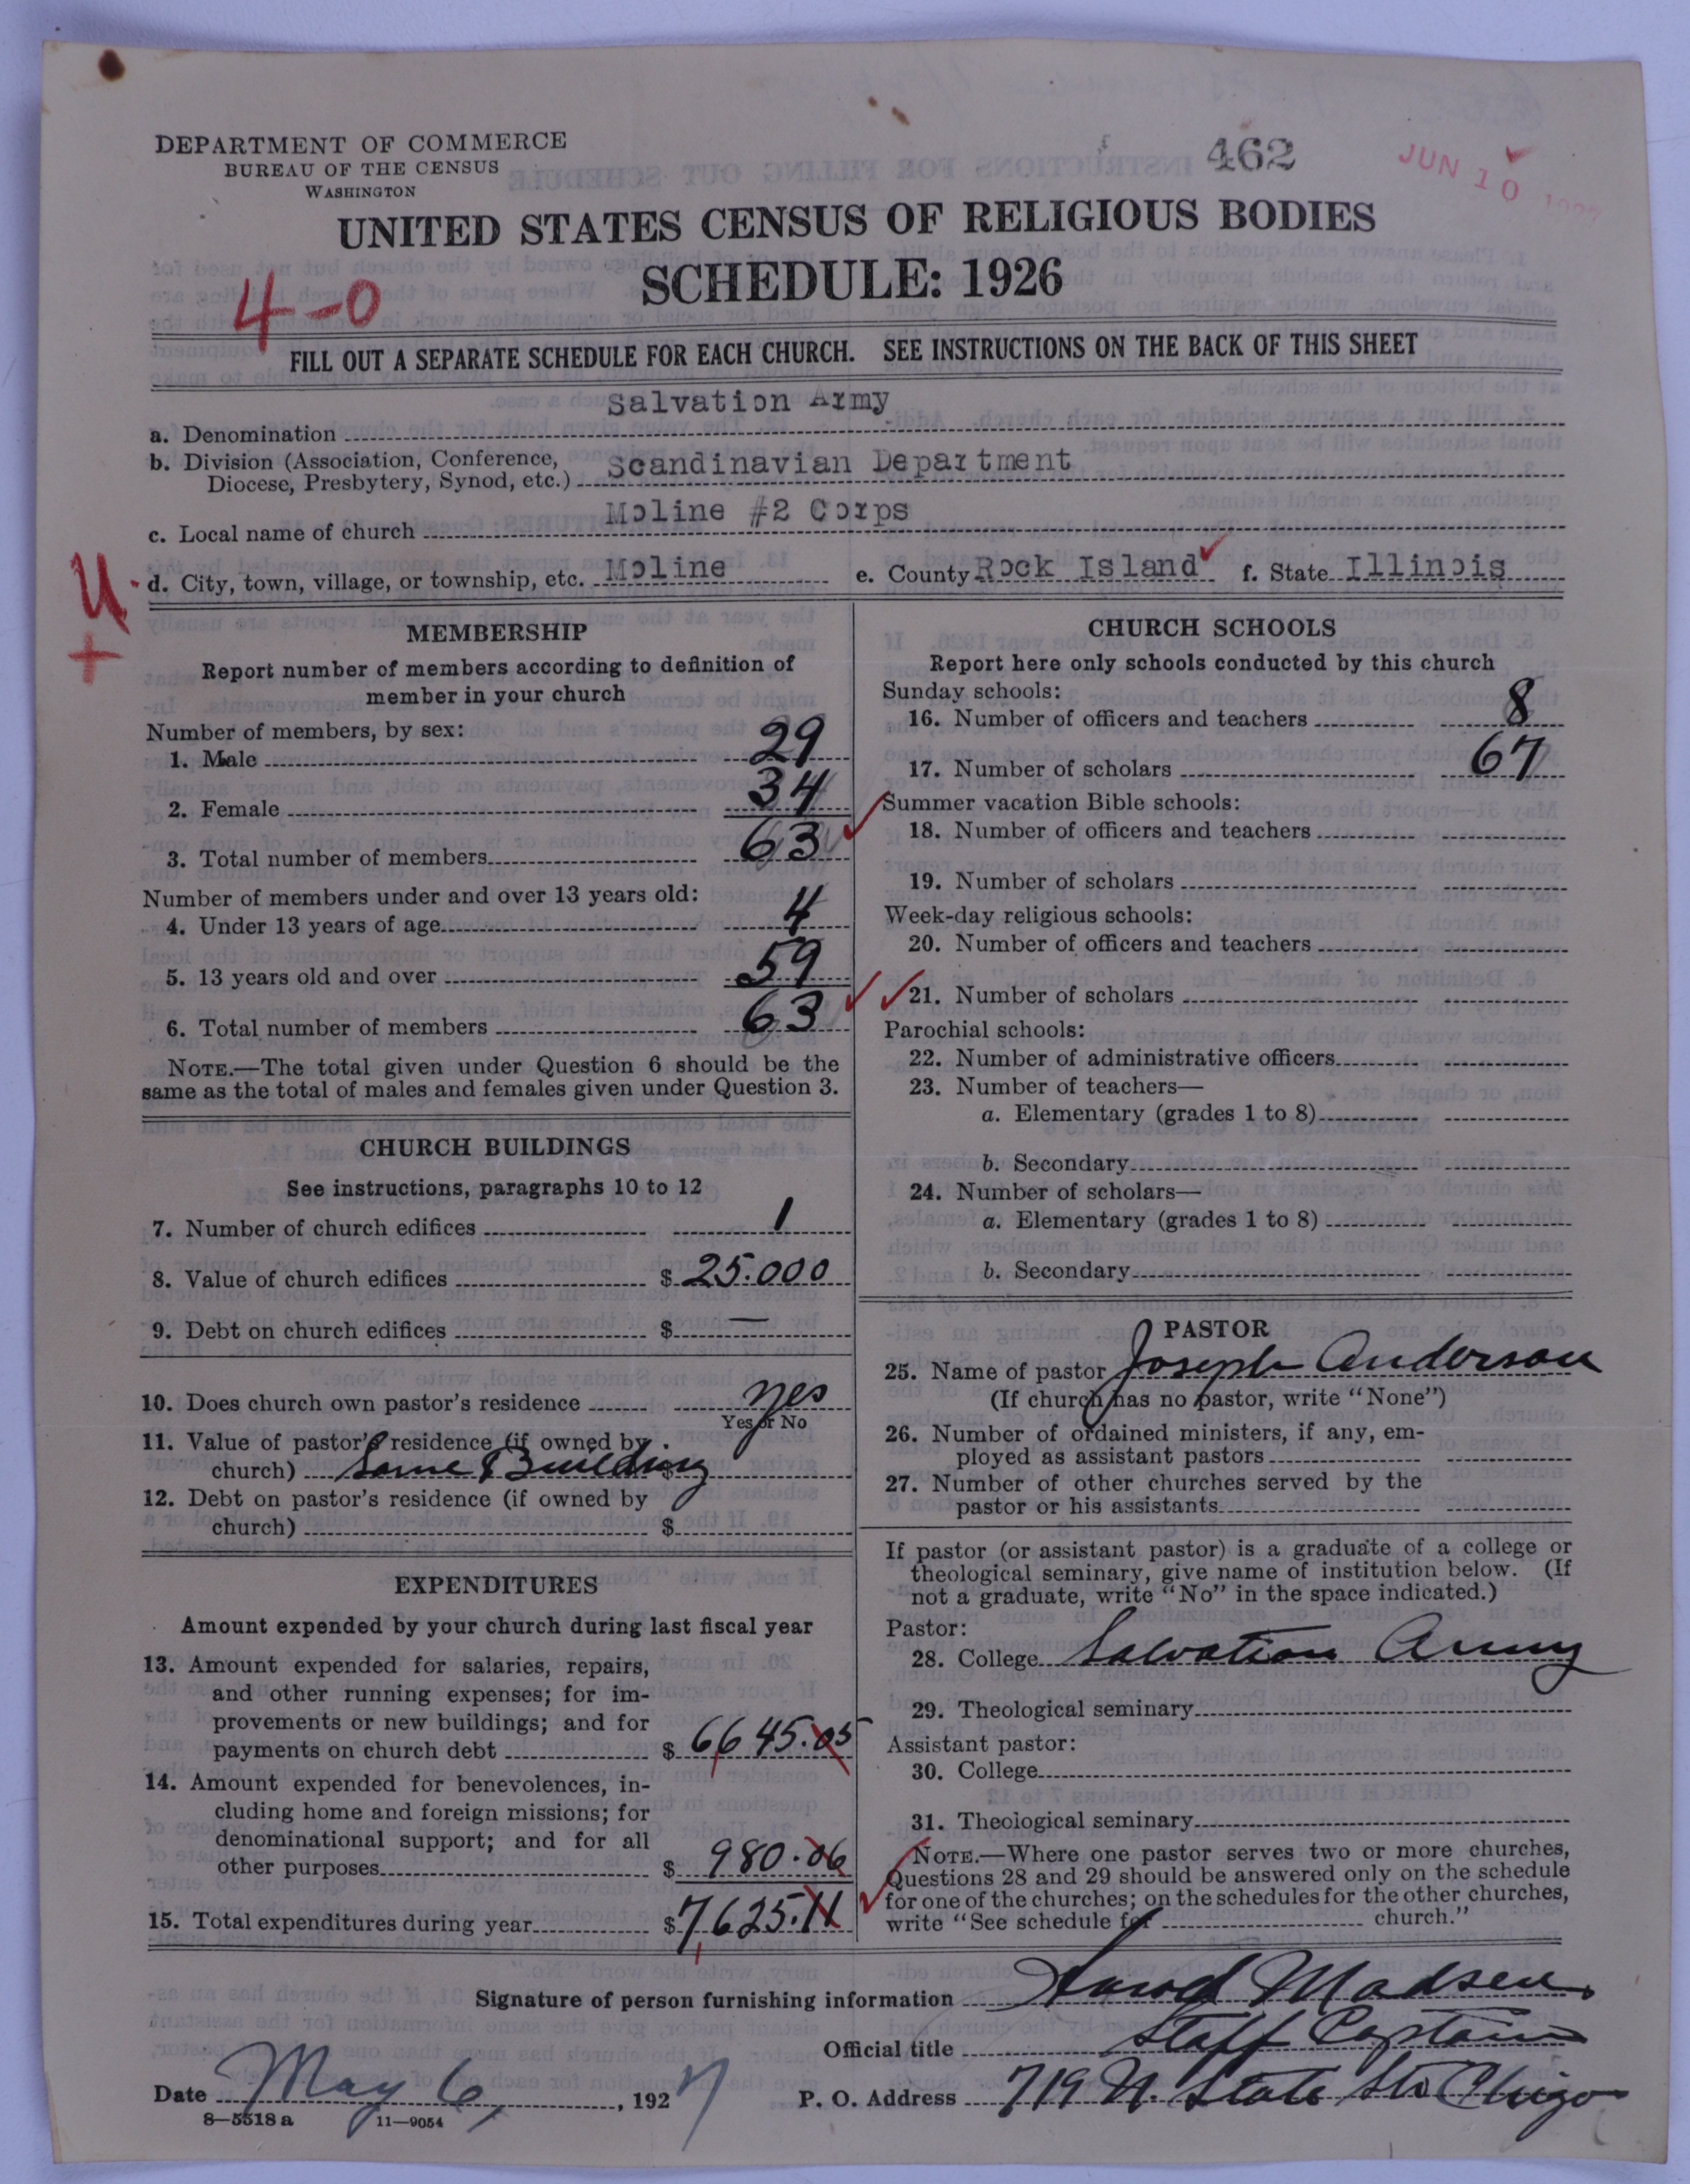 DEPARTMENT OF COMMERCE
BUREAU OF THE CENSUS
WASHINGTON
462
JUN 10
UNITED STATES CENSUS OF RELIGIOUS BODIES
SCHEDULE: 1926
4-0
FILL OUT A SEPARATE SCHEDULE FOR EACH CHURCH. SEE INSTRUCTIONS ON THE BACK OF THIS SHEET
a. Denomination Salvation Army
b. Division (Association, Conference, Diocese, Presbytery, Synod, etc.) Scandinavian Department
c. Local name of church Moline #2 Corps
U
+
d. City, town, village, or township, etc. Moline e. County Rock Island f. State Illinois
MEMBERSHIP
Report number of members according to definition of
member in your church
Number of members, by sex:
1. Male 29
2. Female 34
3. Total number of members 63
Number of members under and over 13 years old:
4. Under 13 years of age 4
5. 13 years old and over 59
6. Total number of members 63
NOTE.—The total given under Question 6 should be the
same as the total of males and females given under Question 3.
CHURCH BUILDINGS
See instructions, paragraphs 10 to 12
7. Number of church edifices 1
8. Value of church edifices $ 25.000
9. Debt on church edifices $ —
10. Does church own pastor's residence yes
Yes or No
11. Value of pastor's residence (if owned by
church) Same Building $
12. Debt on pastor's residence (if owned by
church) $
EXPENDITURES
Amount expended by your church during last fiscal year
13. Amount expended for salaries, repairs,
and other running expenses; for im-
provements or new buildings; and for
payments on church debt $ 6,645.05
14. Amount expended for benevolences, in-
cluding home and foreign missions; for
denominational support; and for all
other purposes $ 980.06
15. Total expenditures during year $ 7,625.11
CHURCH SCHOOLS
Report here only schools conducted by this church
Sunday schools:
16. Number of officers and teachers 8
17. Number of scholars 67
Summer vacation Bible schools:
18. Number of officers and teachers
19. Number of scholars
Week-day religious schools:
20. Number of officers and teachers
21. Number of scholars
Parochial schools:
22. Number of administrative officers
23. Number of teachers—
a. Elementary (grades 1 to 8)
b. Secondary
24. Number of scholars—
a. Elementary (grades 1 to 8)
b. Secondary
PASTOR
25. Name of pastor Joseph Anderson
(If church has no pastor, write "None")
26. Number of ordained ministers, if any, em-
ployed as assistant pastors
27. Number of other churches served by the
pastor or his assistants
If pastor (or assistant pastor) is a graduate of a college or
theological seminary, give name of institution below. (If
not a graduate, write "No" in the space indicated.)
Pastor:
28. College Salvation Army
29. Theological seminary
Assistant pastor:
30. College
31. Theological seminary
NOTE.—Where one pastor serves two or more churches,
Questions 28 and 29 should be answered only on the schedule
for one of the churches; on the schedules for the other churches,
write "See schedule for church."
Signature of person furnishing information Madsen
Official title Staff Captain
Date May 6, 1927 P. O. Address 719 N. State St. Chigo
8—5518 a 11—9054